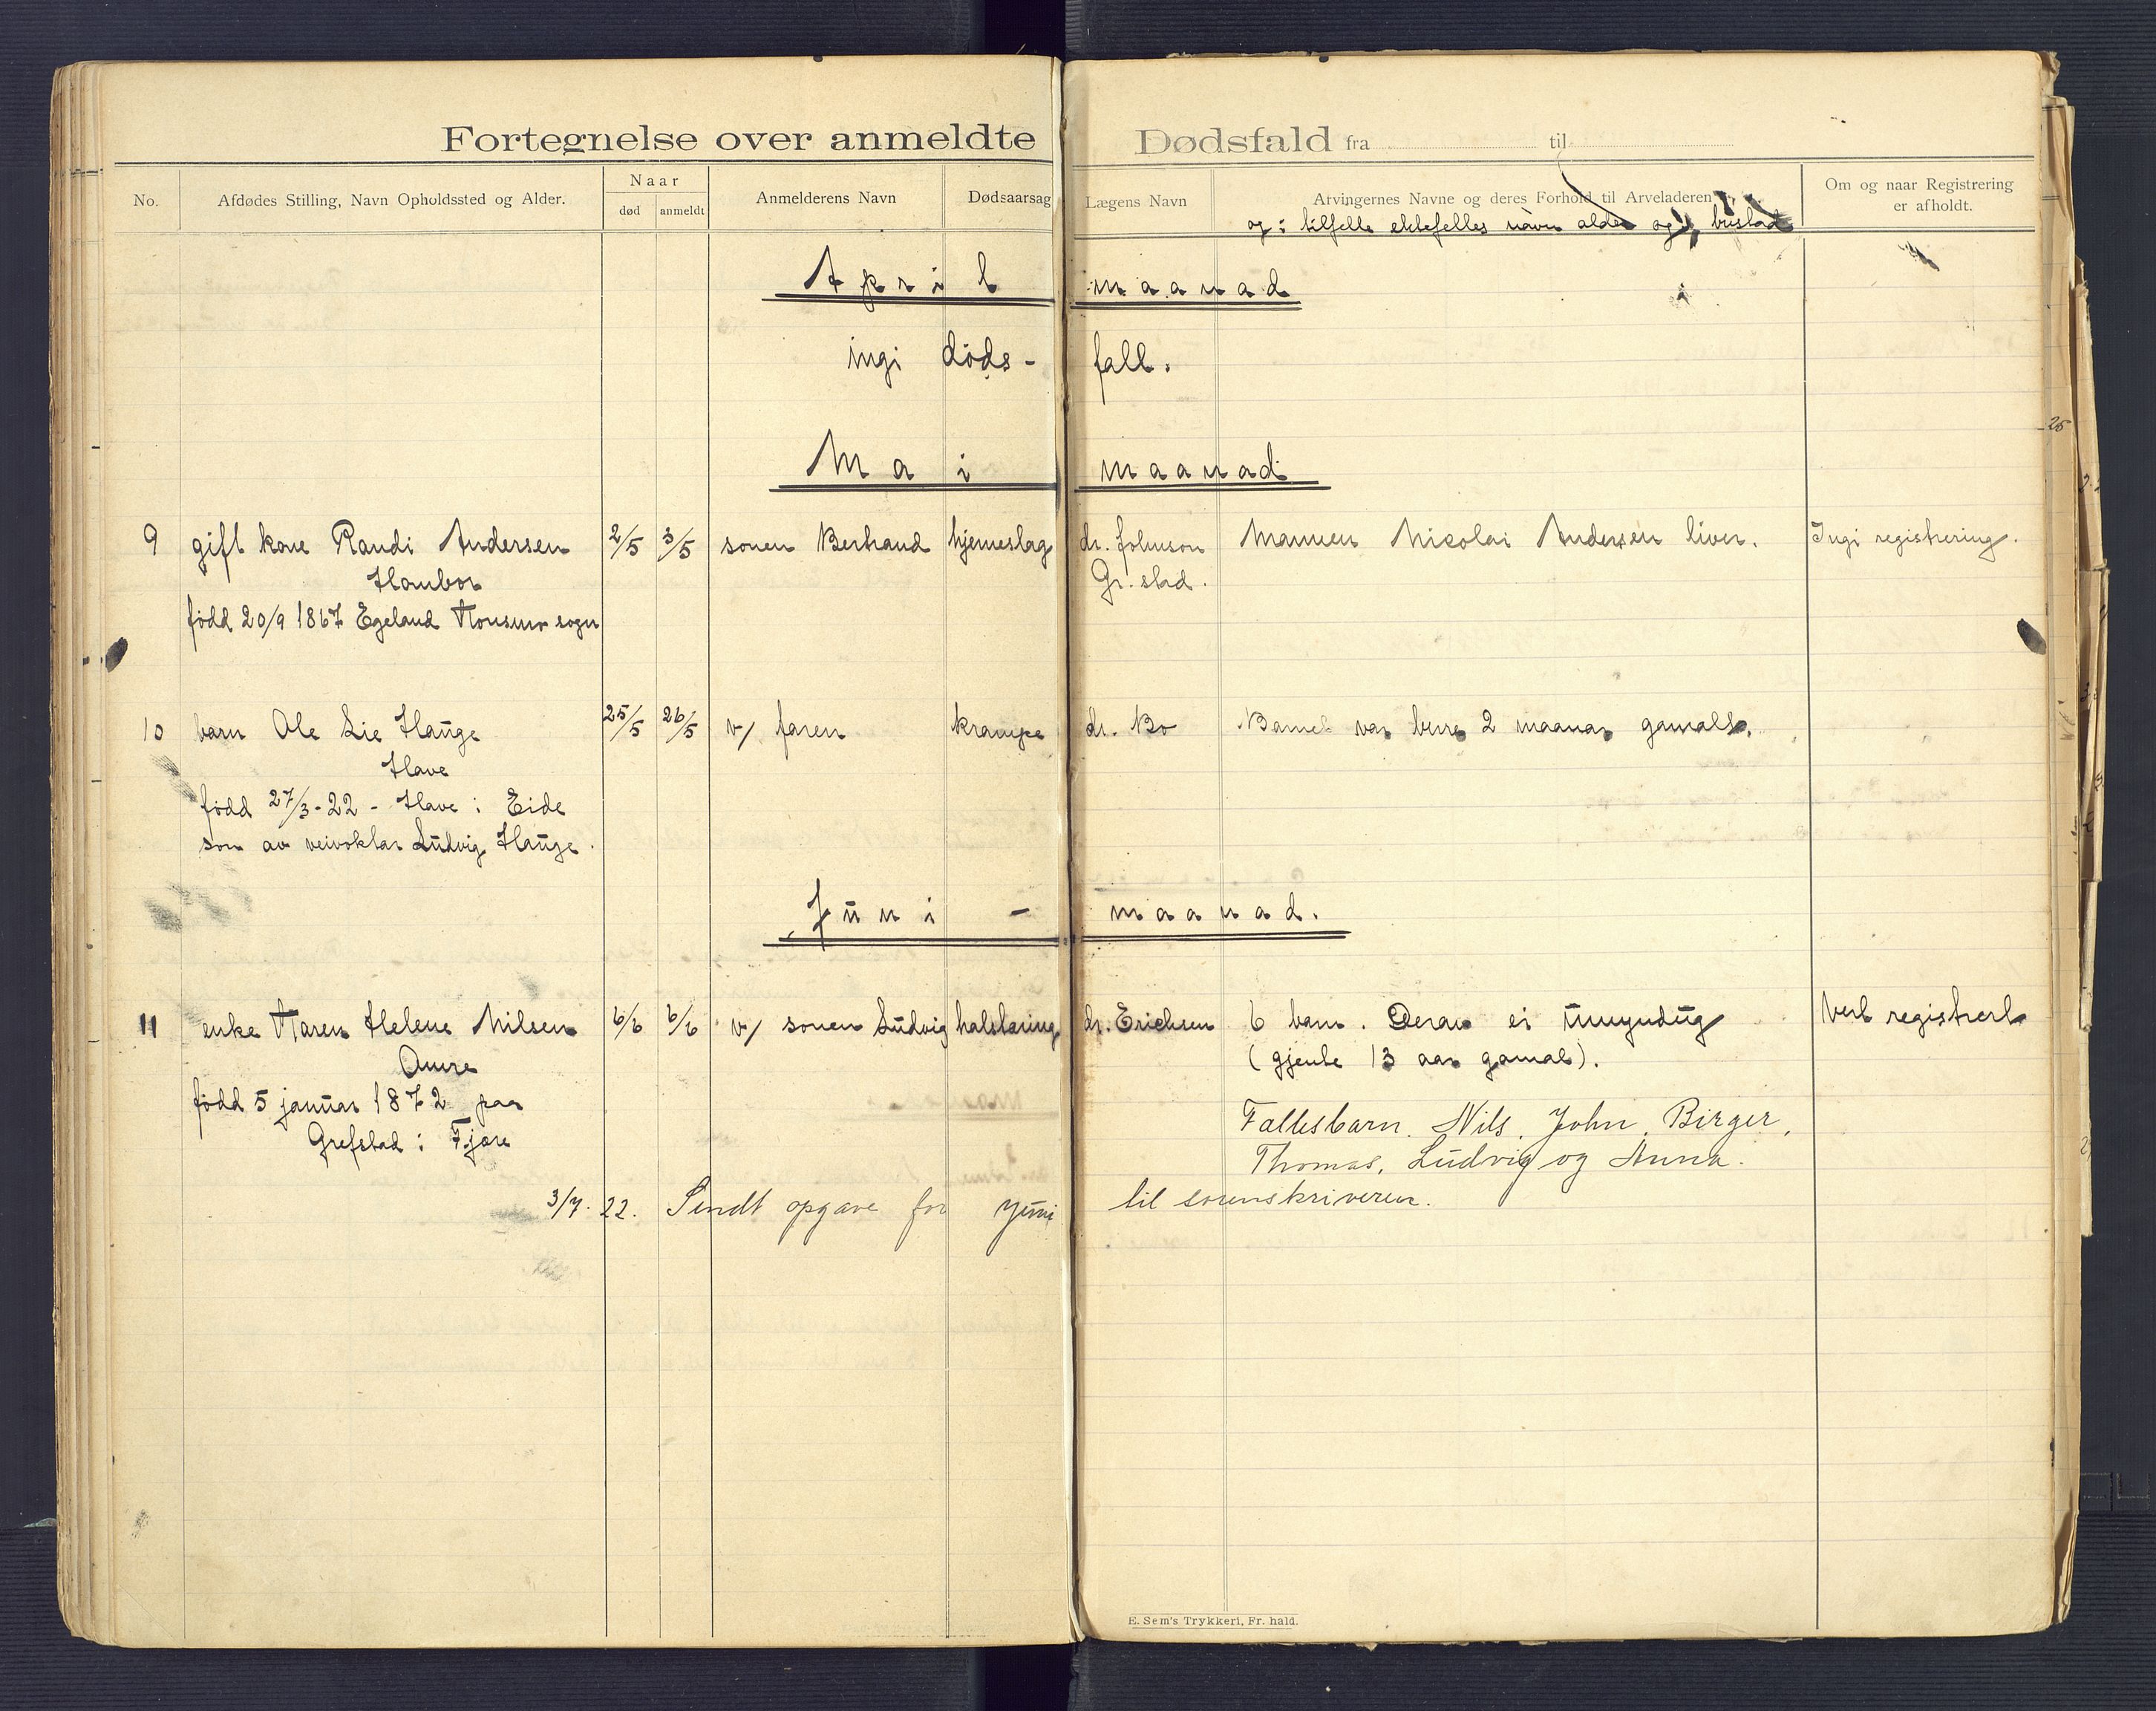 Fortegnelse over anmeldte Dødsfald fra til
No. Afdødes Stilling, Navn Opholdssted og Alder. Naar død anmeldt Anmelderens Navn Dødsaarsag Lægens Navn Arvingernes Navne og deres Forhold til Arveladeren Om og naar Registrering er afholdt.
og i tilfelle ektefelles navn alder og bustad
April maanad
ingi døds- fall.
Mai maanad
9 gift kone Randi Andersen 2/5 3/5 sonen Berhand hjerneslag dr. Johnson Mannen Nicolai Andersen liver. Ingi registrering.
Hombor Gr.stad.
fødd 20/9 1867 Egeland sogn
10 barn Ole Lie Hauge 25/5 26/5 v/ faren krampe dr. Bo Barnet var berre 2 maanar gamalt.
Have
fødd 27/3-22 - Have i Eide
son av veivoktar Ludvig Hauge.
Juni - maanad.
11 enke Maren Helene Nilsen 6/6 6/6 v/ sonen Ludvig dr. Erichsen 6 barn. Derav ei umyndug Vert registrert
(gjente 13 aar gamal).
fødd 5 januar 1872 paa Fallesbarn. Nils, John, Birger,
Grefstad i Fjære Thomas, Ludvig og Anna.
3/7. 22. Sendt opgave for juni til sorenskriveren.
E. Sem's Trykkeri, Fr. hald.